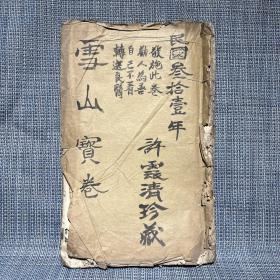 民國叁拾壹年
敬施此卷
勸人為善
自己不看
轉送良醫
許霞清珍藏
雪山寶卷